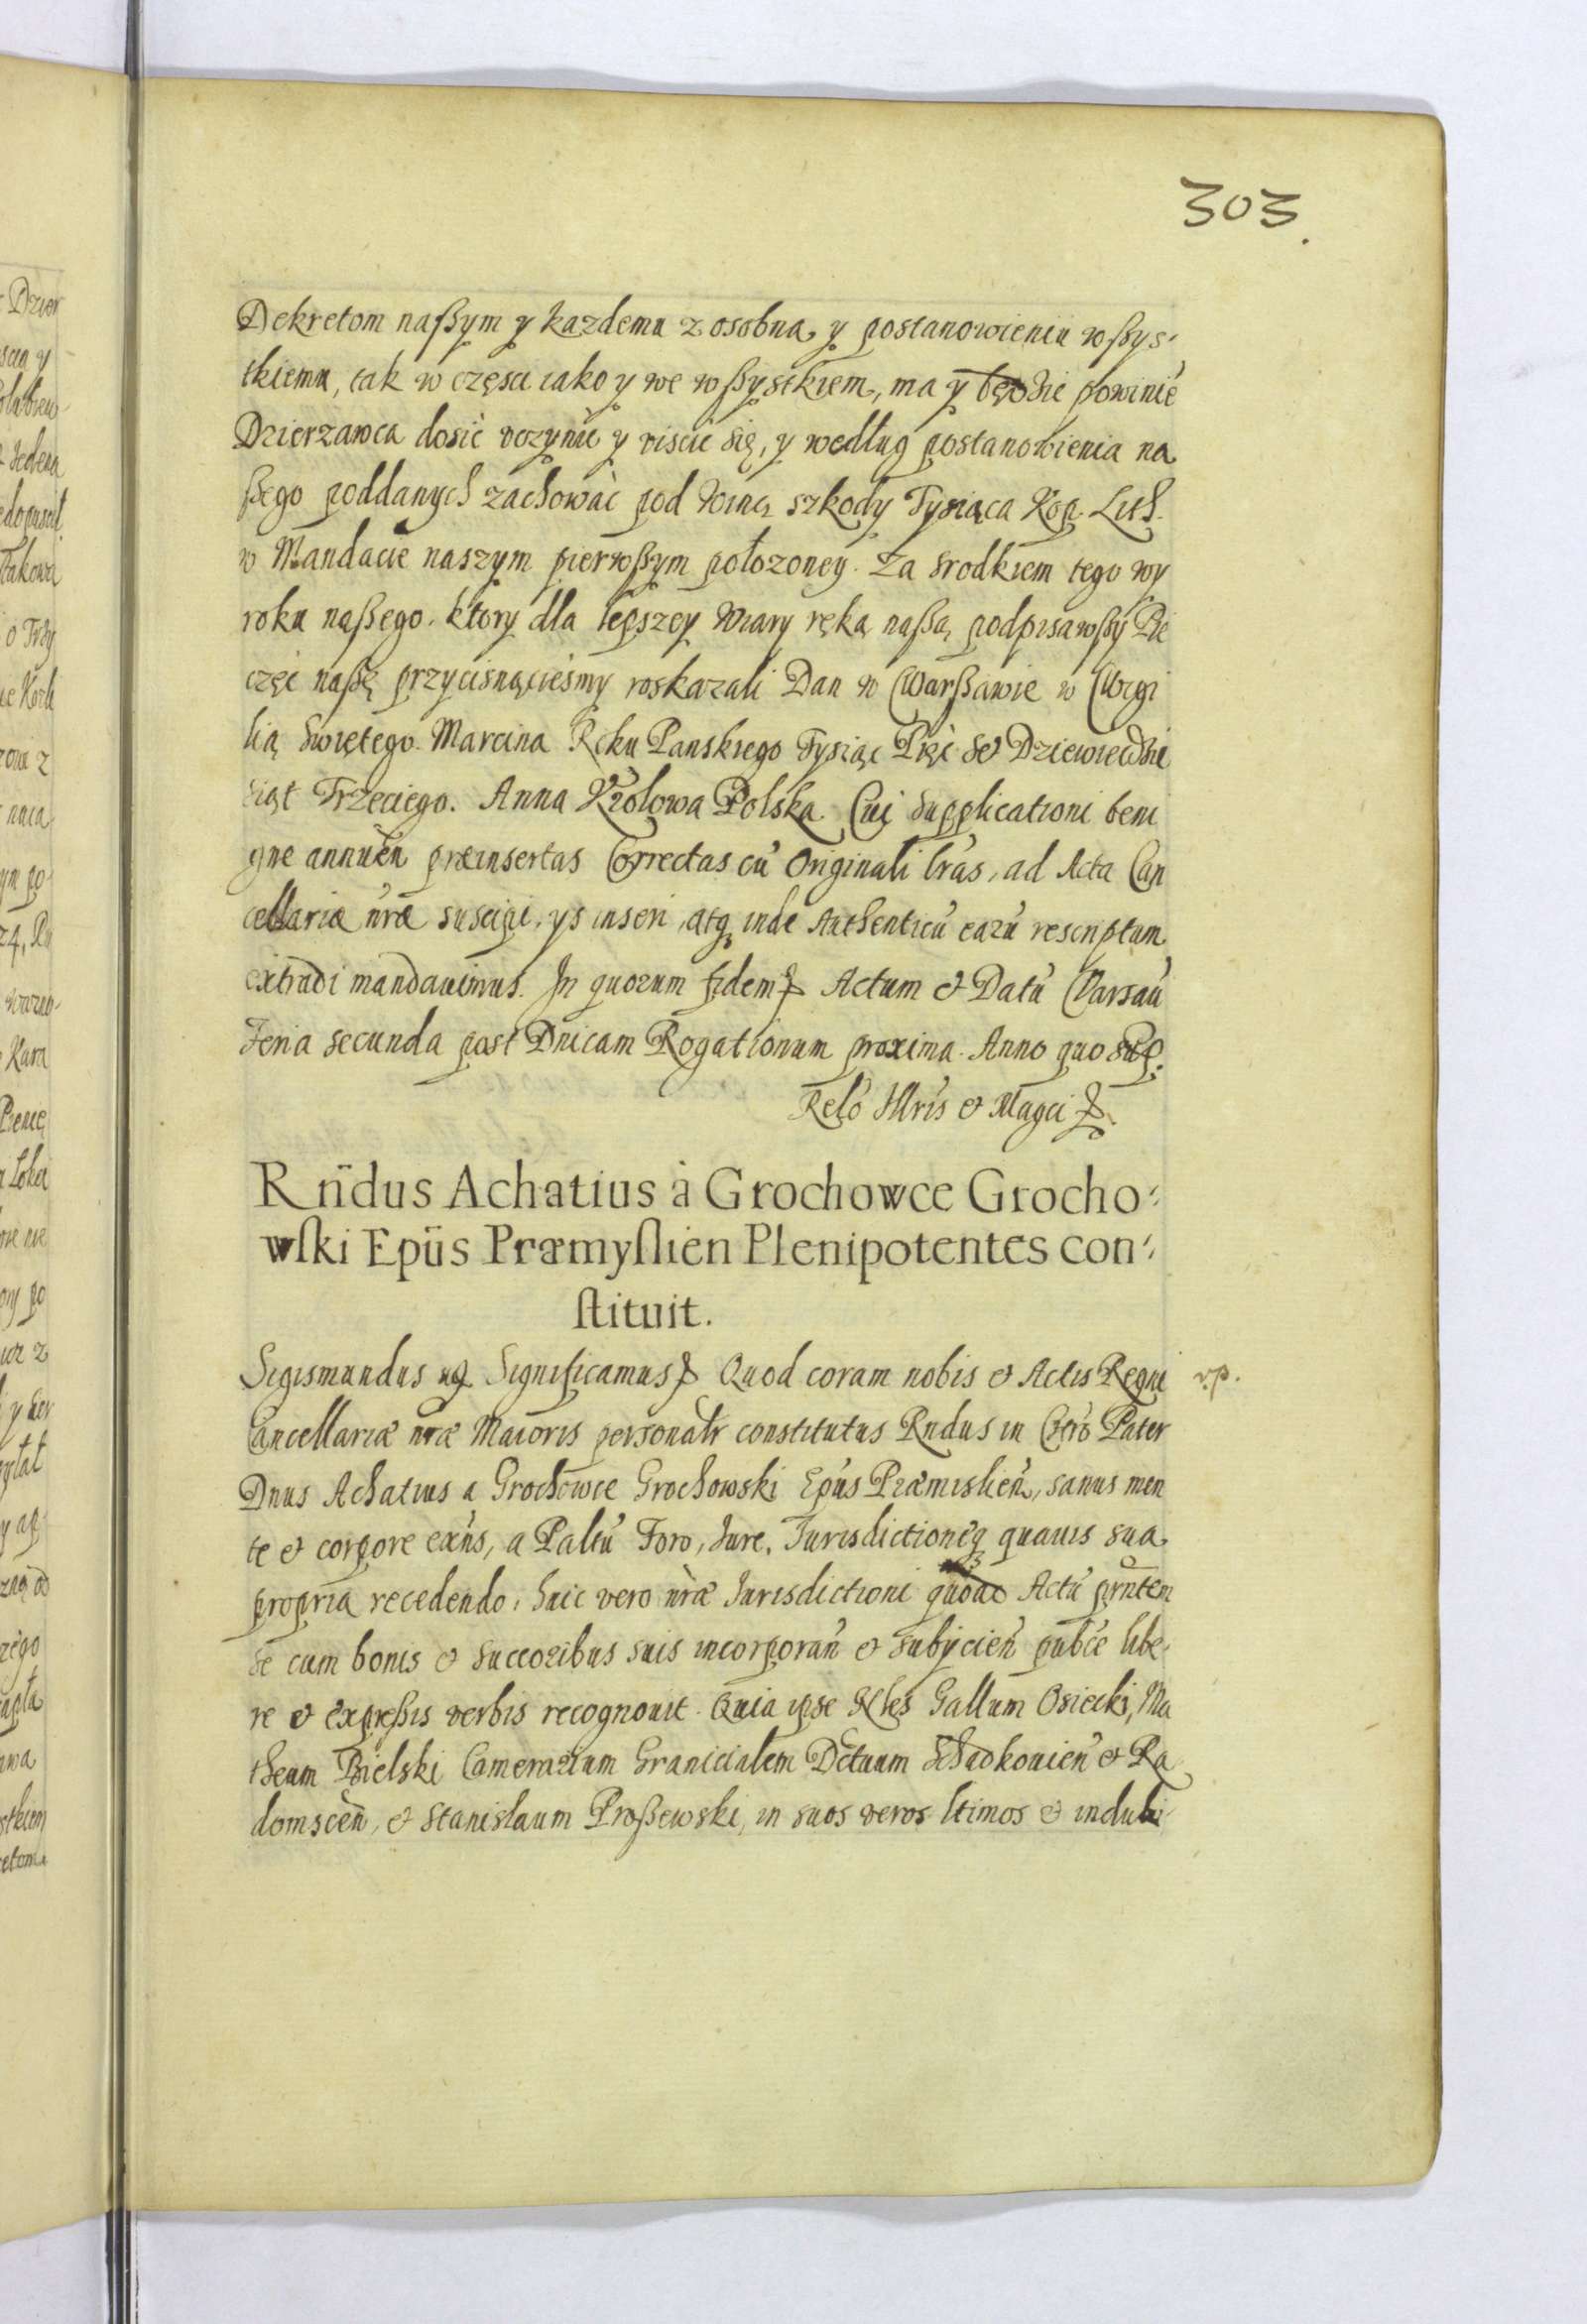 303.
Dekretom naßym y kazdemu z osobna, y postanowieniu wßys-
tkiemu, tak w częsci iako y we wßystkiem, ma y będzie powinie̅
Dzierzawca dosić vczynić y viscić się, y według postanowienia na
ßego poddanych zachować pod winą szkody Tysiąca Kop. Lith.
w Mandacie naszym pierwßym połozoney. Za srodkiem tego wy
roku naßego. ktory dla lepszey wiary ręką naßą podpisawßy Pie
częć naßę przycisnącieśmy roskazali Dan w Warßawie w Wigi
lią Swiętego Marcina Roku Panskiego Tysiąc Pięć set Dziewiedzie
siąt Trzeciego. Anna Krolowa Polska. Cui supplicationi beni
gne annuen̅ præinsertas Correctas cu̅ Originali lr̅as, ad Acta Can
cellariæ nr̅æ suscipi, ys inseri, atq₃ inde Authenticu̅ earu̅ rescriptum
extradi mandauimus. In quorum fidem Actum & Datu̅ Varsau̅
Feria secunda post Dnicam Rogationum proxima. Anno quo sup.
Relo̅ Illr̅is & Magci
Rn̈dus Achatius à Grochowce Grocho-
wſki Epu̅s Præmyſlien̅ Plenipotentes con-
ſtituit.
Sigismundus Significamus Quod coram nobis & Actis Regni
v.p.
Cancellariæ nr̅æ Maioris personalr constitutus Rndus in Chro̅ Pater
Dnus Achatius a Grochowce Grochowski Epu̅s Præmislien̅, sanus men
te & corpore exn̅s, a Palt̅u Foro, Iure, Iurisdictioneq₃ quauis sua
propria recedendo, huic vero nr̅æ Iurisdictioni quoad Actu̅ prn̅tem
se cum bonis & succoribus suis incorporan̅ & subycien̅ publ̅ce libe-
re & expreßis verbis recognouit. Quia ipse Nles Gallum Osiecki, Ma
theum Bielski Camerarium Granicialem Dctuum Schadkouien̅ & Ra
domscen̅, & Stanislaum Proßewski, in suos veros ltimos & indubi-